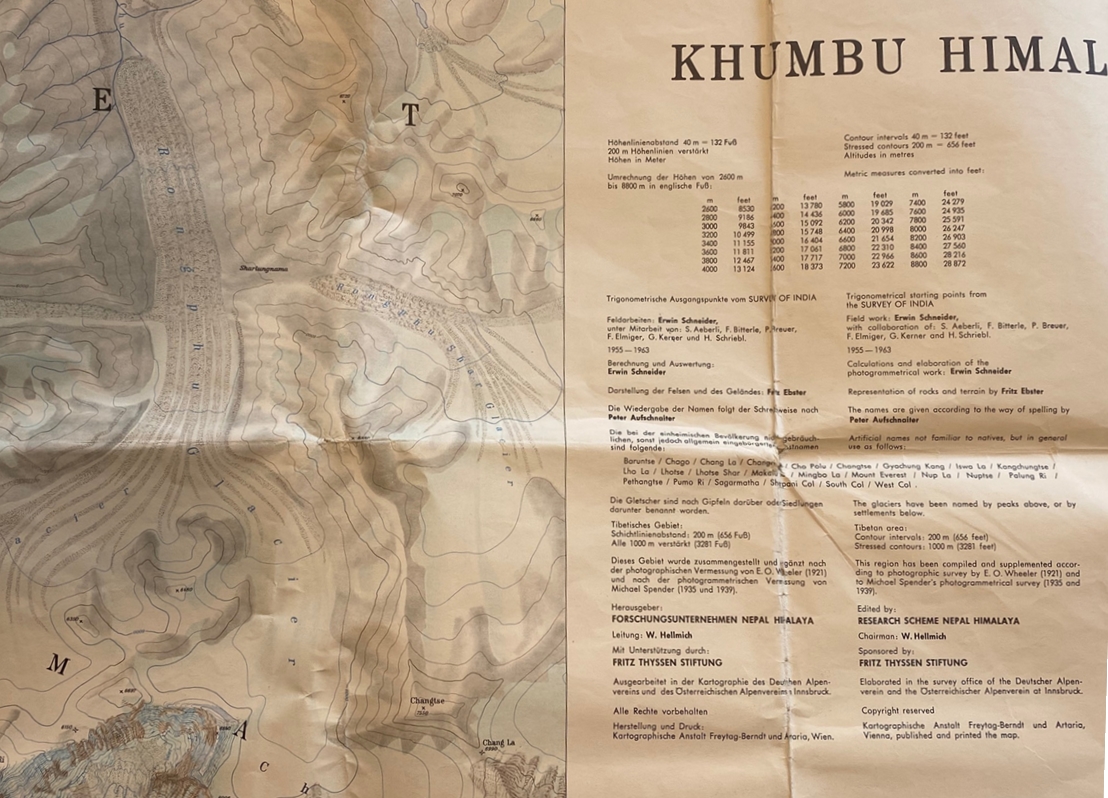 E
T
Rongphug
Glacier
Shartungnama
Rongphu Shar
Glacier
acier
M
A
Ch
Changtse
Chang La
KHUMBU HIMAL
Höhenlinienabstand 40 m = 132 Fuß
200 m Höhenlinien verstärkt
Höhen in Meter
Umrechnung der Höhen von 2600 m
bis 8800 m in englische Fuß:
Contour intervals 40 m = 132 feet
Stressed contours 200 m = 656 feet
Altitudes in metres
Metric measures converted into feet:
m feet m feet m feet m feet
2600 8530 200 13 780 5800 19 029 7400 24 279
2800 9186 400 14 436 6000 19 685 7600 24 935
3000 9843 600 15 092 6200 20 342 7800 25 591
3200 10 499 800 15 748 6400 20 998 8000 26 247
3400 11 155 000 16 404 6600 21 654 8200 26 903
3600 11 811 200 17 061 6800 22 310 8400 27 560
3800 12 467 400 17 717 7000 22 966 8600 28 216
4000 13 124 600 18 373 7200 23 622 8800 28 872
Trigonometrische Ausgangspunkte vom SURVEY OF INDIA
Feldarbeiten: Erwin Schneider,
unter Mitarbeit von: S. Aeberli, F. Bitterle, P. Breuer,
F. Elmiger, G. Kerner und H. Schriebl.
1955 — 1963
Berechnung und Auswertung:
Erwin Schneider
Darstellung der Felsen und des Geländes: Fritz Ebster
Die Wiedergabe der Namen folgt der Schreibweise nach
Peter Aufschnaiter
Die bei der einheimischen Bevölkerung nicht gebräuch-
lichen, sonst jedoch allgemein eingebürgerten
sind folgende:
Trigonometrical starting points from
the SURVEY OF INDIA
Field work: Erwin Schneider,
with collaboration of: S. Aeberli, F. Bitterle, P. Breuer,
F. Elmiger, G. Kerner and H. Schriebl.
1955 — 1963
Calculations and elaboration of the
photogrammetrical work: Erwin Schneider
Representation of rocks and terrain by Fritz Ebster
The names are given according to the way of spelling by
Peter Aufschnaiter
Artificial names not familiar to natives, but in general
use as follows:
Baruntse / Chago / Chang La / / Cho Polu / Changtse / Gyachung Kang / Iswa La / Kangchungtse /
Lho La / Lhotse / Lhotse Shar / Makalu / Mingbo La / Mount Everest / Nup La / Nuptse / Palung Ri /
Pethangtse / Pumo Ri / Sagarmatha / Sherpani Col / South Col / West Col .
Die Gletscher sind nach Gipfeln darüber oder Siedlungen
darunter benannt worden.
Tibetisches Gebiet:
Schichtlinienabstand: 200 m (656 Fuß)
Alle 1000 m verstärkt (3281 Fuß)
Dieses Gebiet wurde zusammengestellt und ergänzt nach
der photographischen Vermessung von E. O. Wheeler (1921)
und nach der photogrammetrischen Vermessung von
Michael Spender (1935 und 1939).
Herausgeber:
FORSCHUNGSUNTERNEHMEN NEPAL HIMALAYA
Leitung: W. Hellmich
Mit Unterstützung durch:
FRITZ THYSSEN STIFTUNG
Ausgearbeitet in der Kartographie des Deutschen Alpen-
vereins und des Österreichischen Alpenvereins Innsbruck.
Alle Rechte vorbehalten
Herstellung und Druck:
Kartographische Anstalt Freytag-Berndt und Artaria, Wien.
The glaciers have been named by peaks above, or by
settlements below.
Tibetan area:
Contour intervals: 200 m (656 feet)
Stressed contours: 1000 m (3281 feet)
This region has been compiled and supplemented accor-
ding to photographic survey by E. O. Wheeler (1921) and
to Michael Spender's photogrammetrical survey (1935 and
1939).
Edited by:
RESEARCH SCHEME NEPAL HIMALAYA
Chairman: W. Hellmich
Sponsored by:
FRITZ THYSSEN STIFTUNG
Elaborated in the survey office of the Deutscher Alpen-
verein and the Österreichischer Alpenverein at Innsbruck.
Copyright reserved
Kartographische Anstalt Freytag-Berndt und Artaria,
Vienna, published and printed the map.